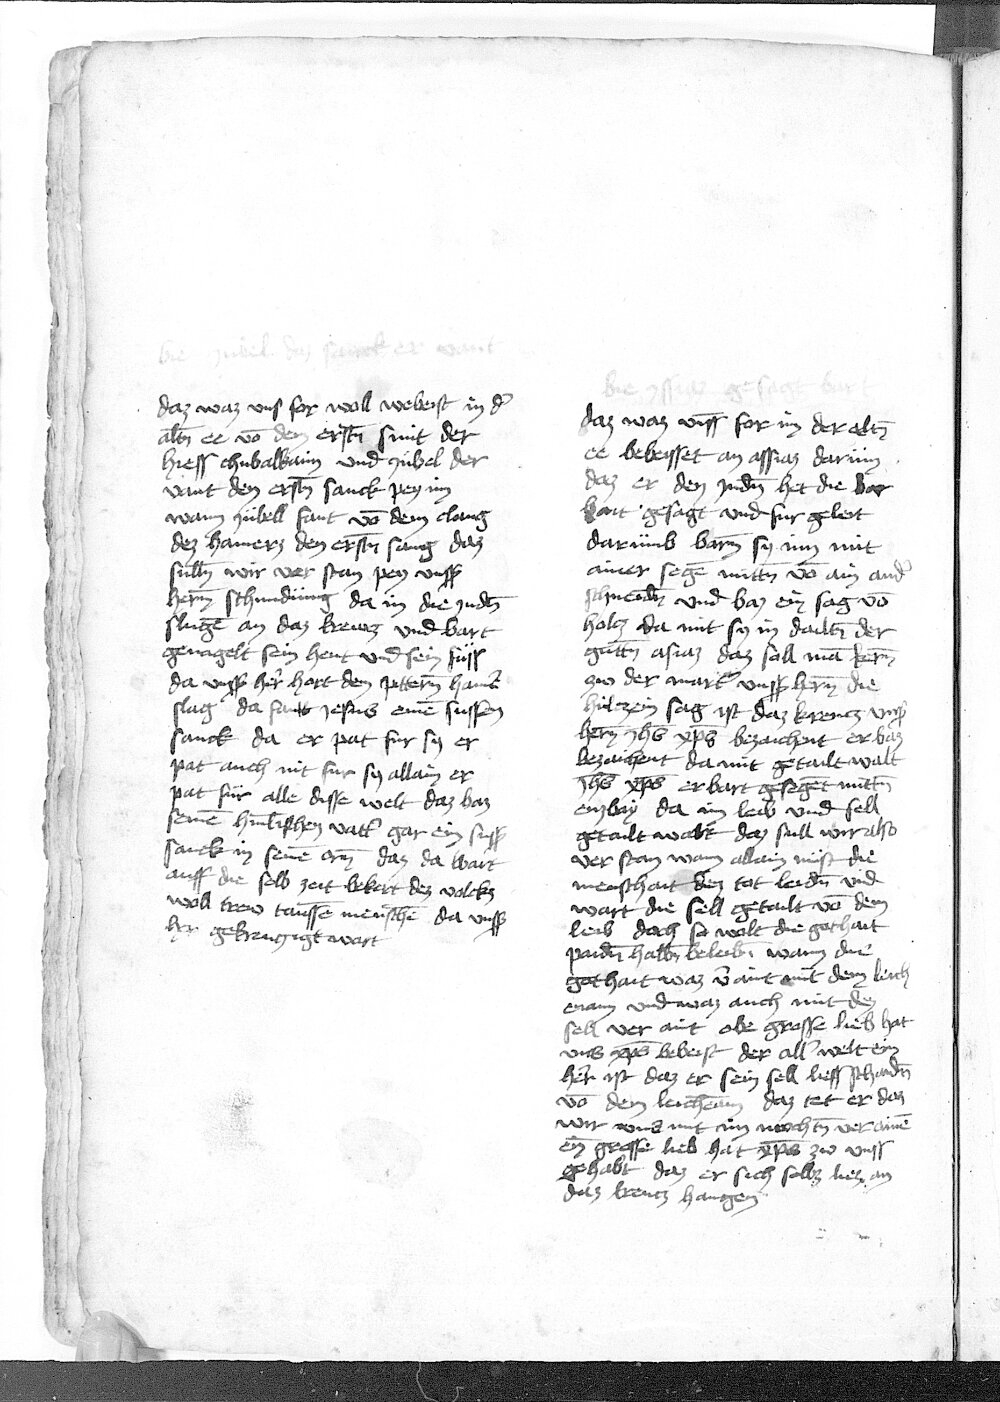 bie jubel daz sanck er vant
daz waz uns for woll weberst in d'
altn ee vō den erstn smit der
hiess chubalkaim und jubel der
vant den erstn sanck pey im
wann jubell fant vō dem clang
dez hamerz den erstn sang daz
sulln wir ver stan pey unss
hern schindung da in die judn
slugē an daz kreucz und bart
genagelt sein hent und sein füss
da unss her hort den pittern hamer
slag da fant jesus einē sussen
sanck da er pat fur sy er
pat auch nit fur sy allain er
pat für alle disse welt daz baz
seinē himlischen vatt' gar ein suss
sanck in seinē orn daz da wart
auff die selb zeit bekert dez volckz
woll trew taussē menschē da unss
her gekreuczigt wart
bie yssiaz gesagt bart
daz waz unss for in der altn
ee bebeisset an assiaz darum
daz er den judn het die bor
hait gesagt und fur geleit
darümb barn sy im mit
ainer segē mittn vō ain and'
schneidn und baz ein sag vō
holcz da mit sy in dailtn der
guttn asiaz daz soll mā kern
zw der mart' unss hern die
hülczein sag ist daz kreucz unss
hern jhs xps bezaichent er baz
bezaichent da mit getailt walt
jhs xps er bart gesegēt mittn
enzbay da im leib und sell
getailt wart daz sull wir also
ver stan wann allain must die
menschait den tot leidn und
wart die sell getailt vō dem
leib doch so wolt die gothait
paidn halbn beleibn wann die
gothait waz v'aint mit dem leich
enam und waz auch mit der
sell ver aint obe grosse lieb hat
uns xps bebeist der all' welt ein
her ist daz er sein sell liess schaidn
vō dem leichēam daz tet er daz
wir uns mit im mochtn ver ainē
ein grosse lieb hat xps zw unss
gehabt daz er sich selbz liez an
daz kreucz hangen